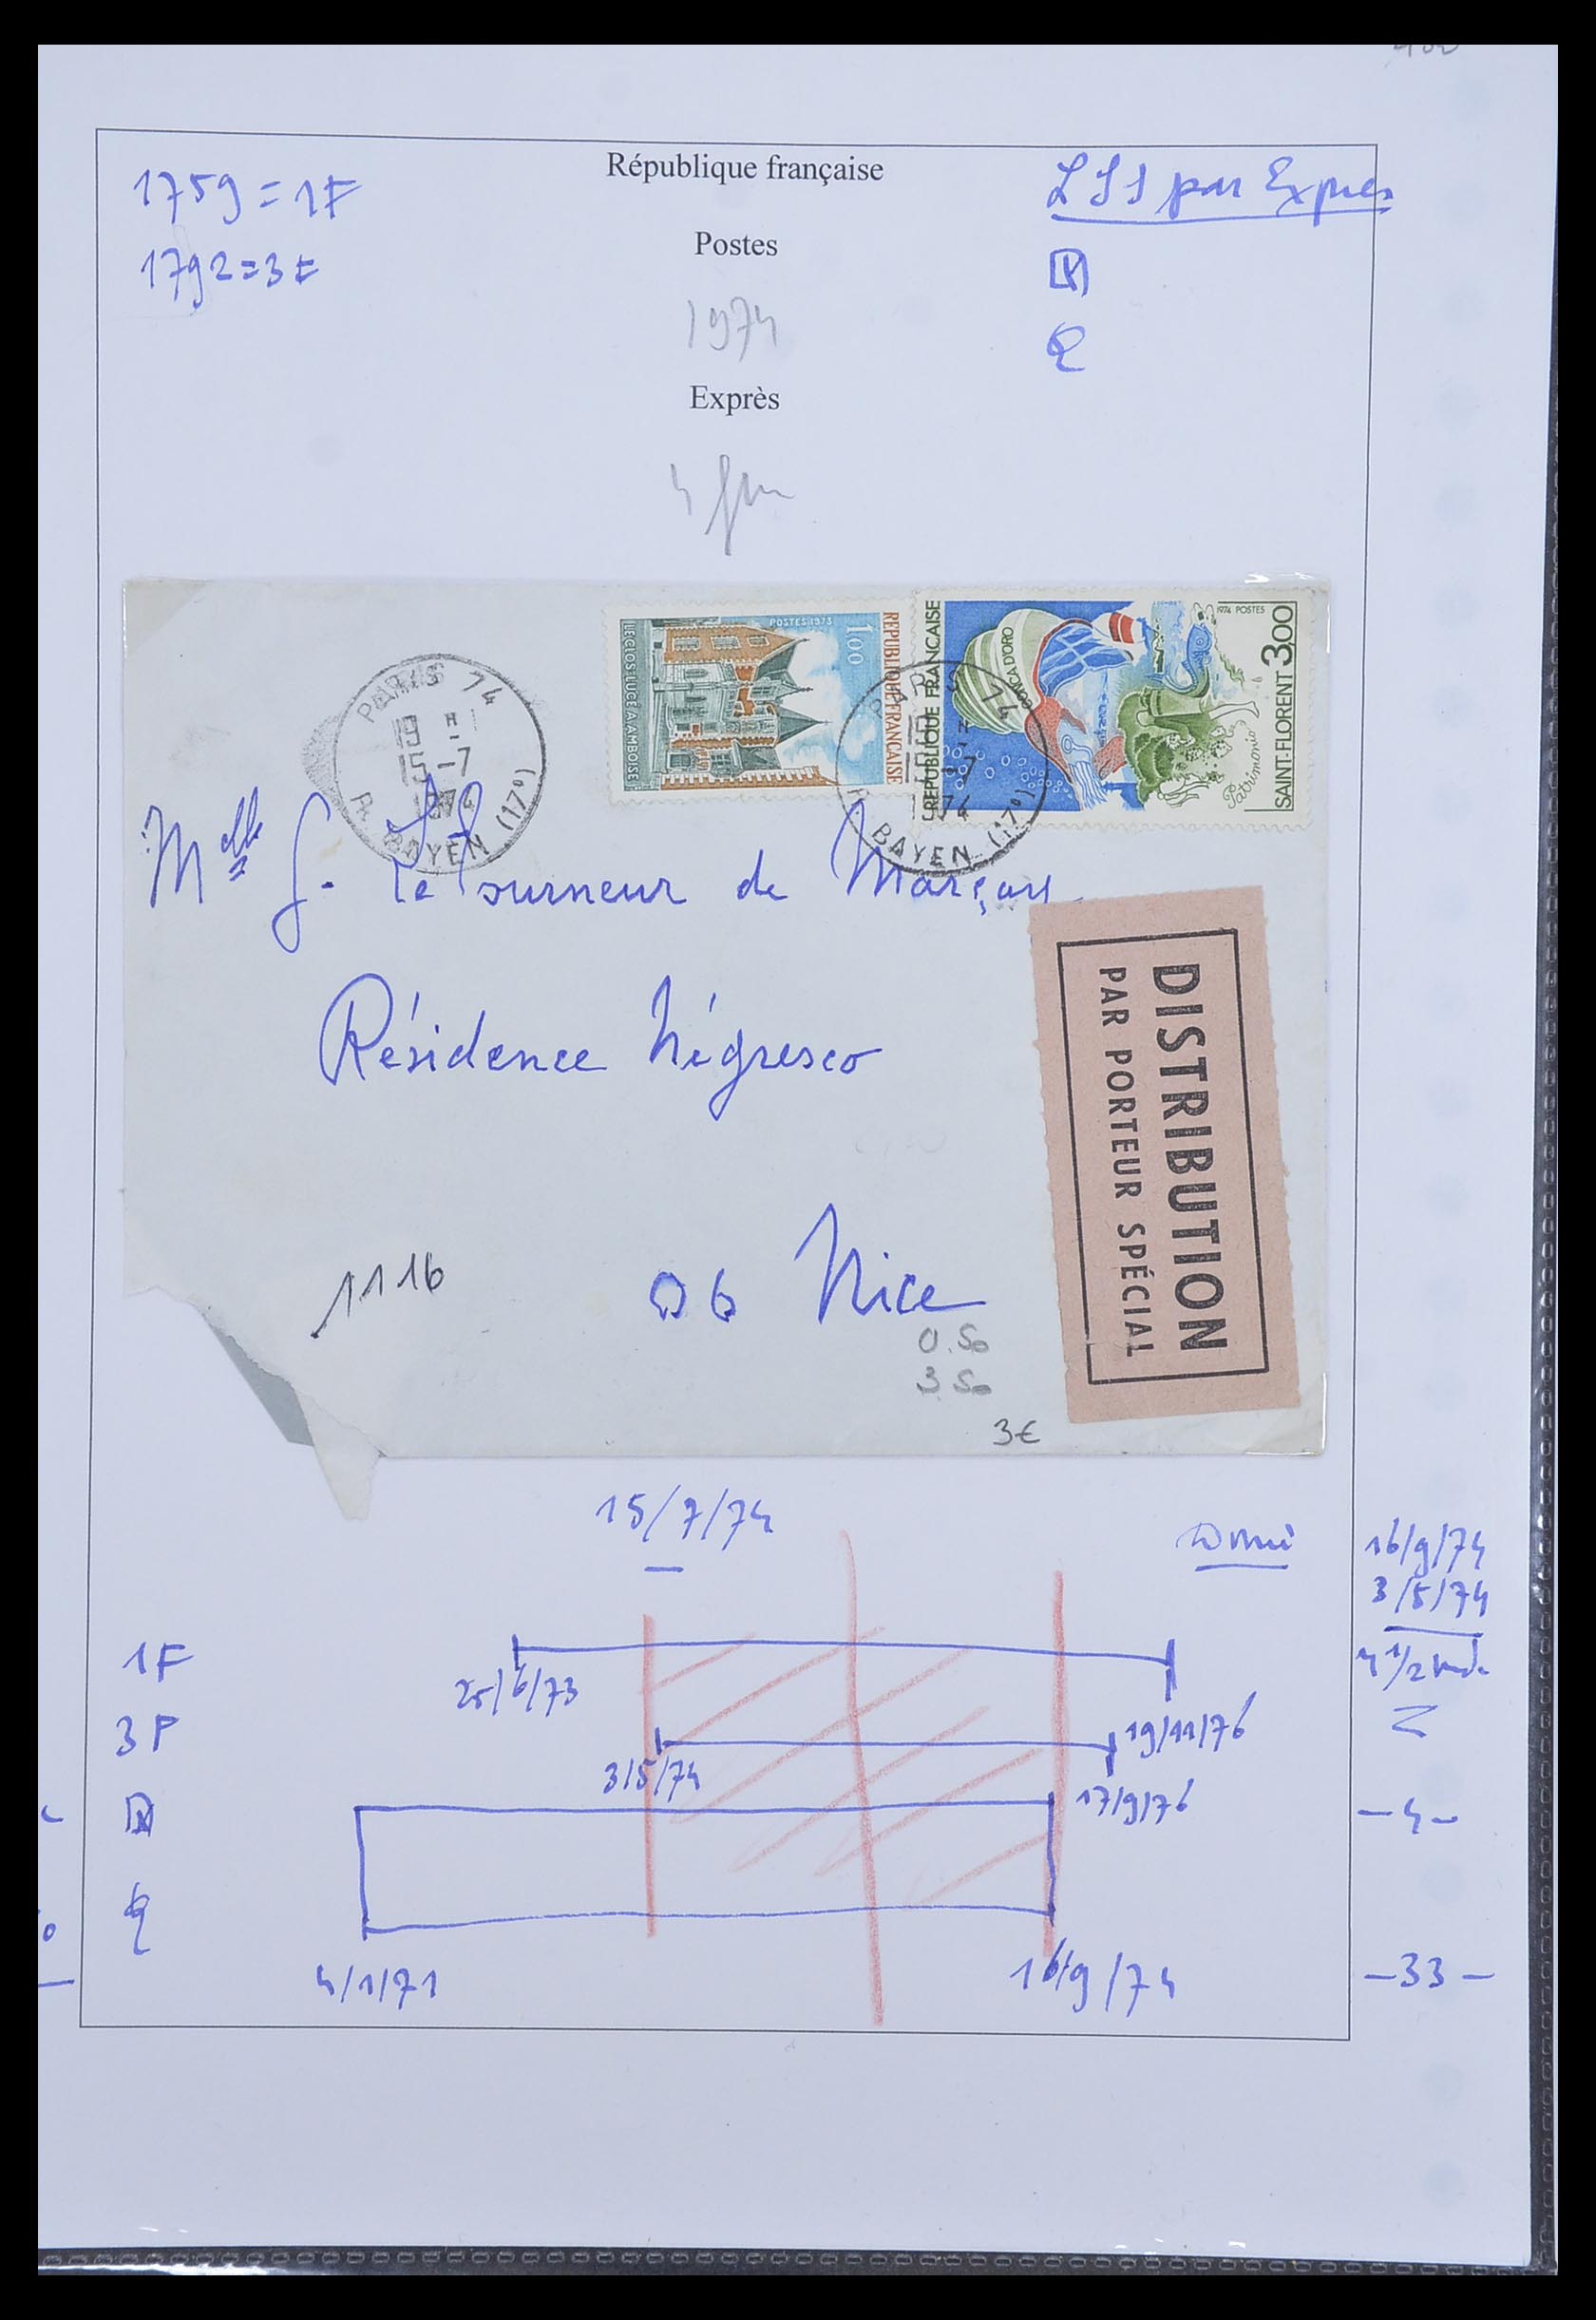 1759 = 1F
1792 = 3F
République française
Postes
1974
Exprès
LSI par Exprès
POSTES 1973
1,00
REPUBLIQUE FRANCAISE
LE CLOS-LUCÉ A AMBOISE
1974 POSTES
3,00
REPUBLIQUE FRANCAISE
CONCA D'ORO
Patrimonio
SAINT-FLORENT
PARIS 74
19 H
15-7
1974
R. BAYEN (17e)
PARIS 74
-7
74
BAYEN (17e)
Melle G. Le Tourneur de Marçay
Résidence Négresco
1116
06 Nice
0.50
3 50
3€
DISTRIBUTION
PAR PORTEUR SPÉCIAL
15/7/74
16/9/74
3/5/74
4 1/2
1F
25/6/73
19/11/76
3F
3/5/74
17/9/76
-4-
4/1/71
16/9/74
-33-